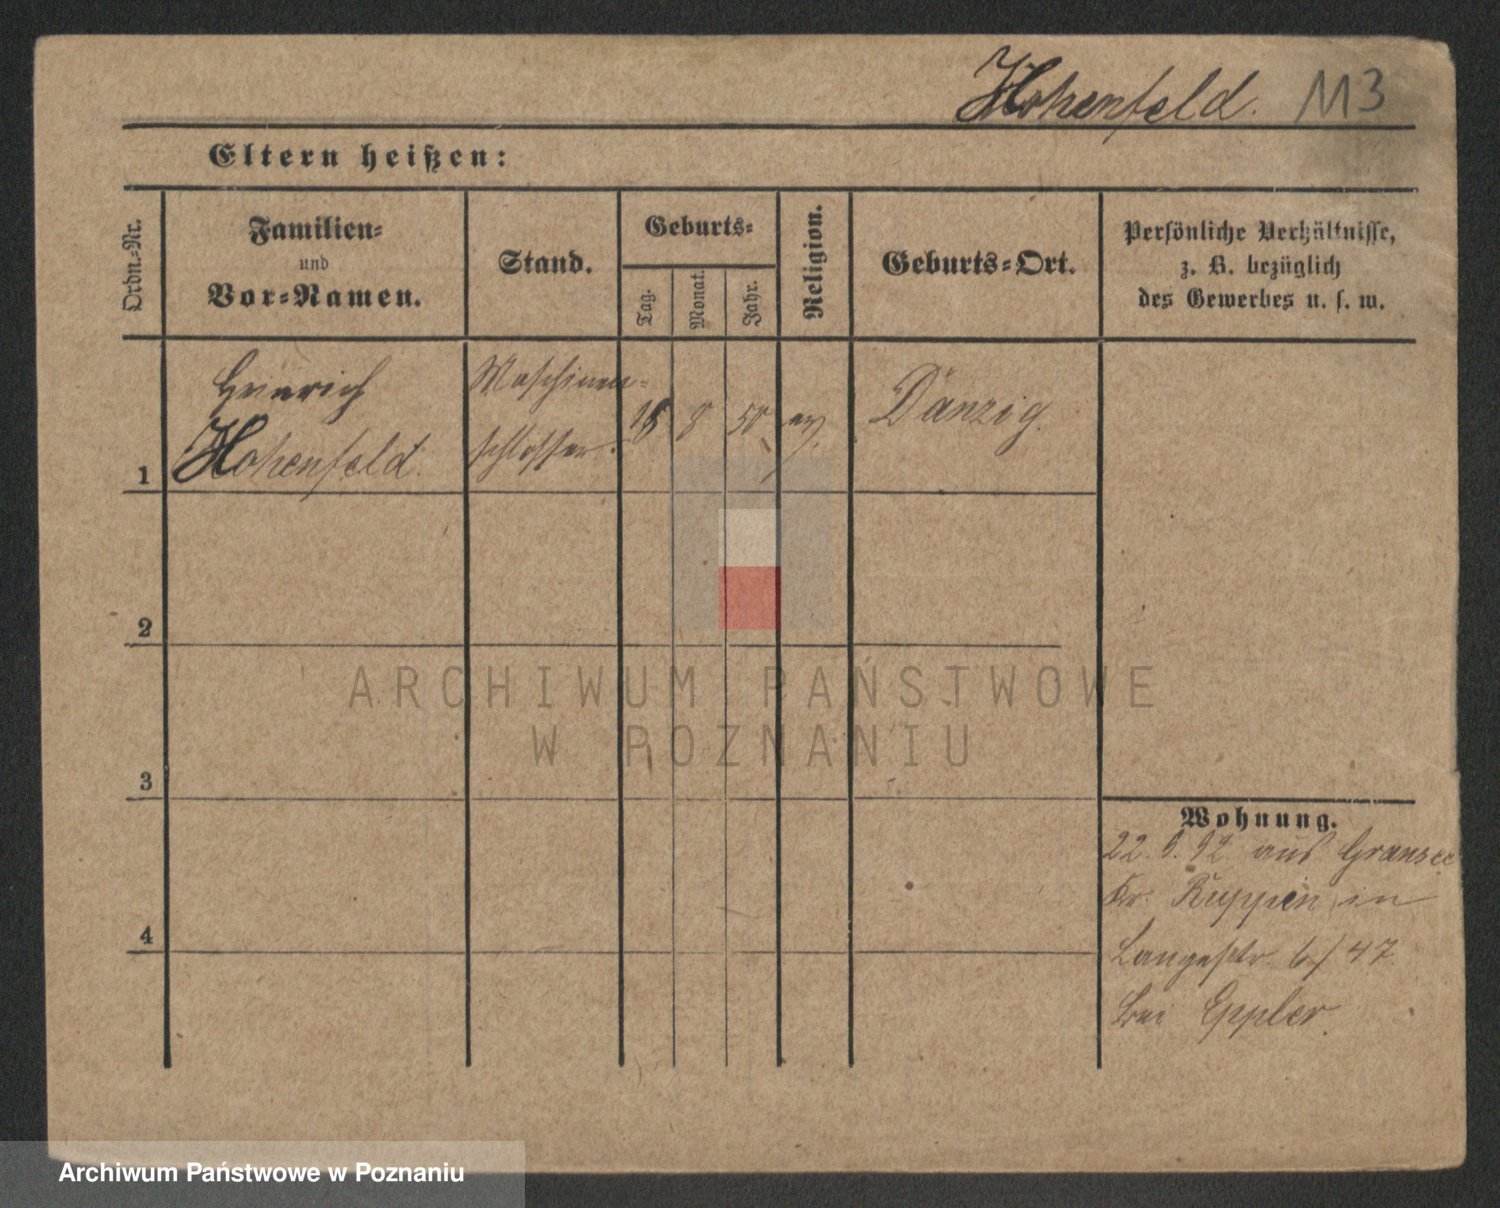 Hohenfeld. 113
Eltern heißen:
Ordn.-Nr.
Familien-
und
Vor-Namen.
Stand.
Geburts-
Tag.
Monat.
Jahr.
Religion.
Geburts-Ort.
Persönliche Verhältnisse,
z. B. bezüglich
des Gewerbes u. s. w.
Heinrich
Hohenfeld.
Maschinen-
schlosser.
8 50 ev.
Danzig.
1
2
ARCHIWUM PAŃSTWOWE
W POZNANIU
3
Wohnung.
22. 92 aus Gransee
Kr. Ruppin in
4
Langestr. 6/47
bei Eppler.
Archiwum Państwowe w Poznaniu